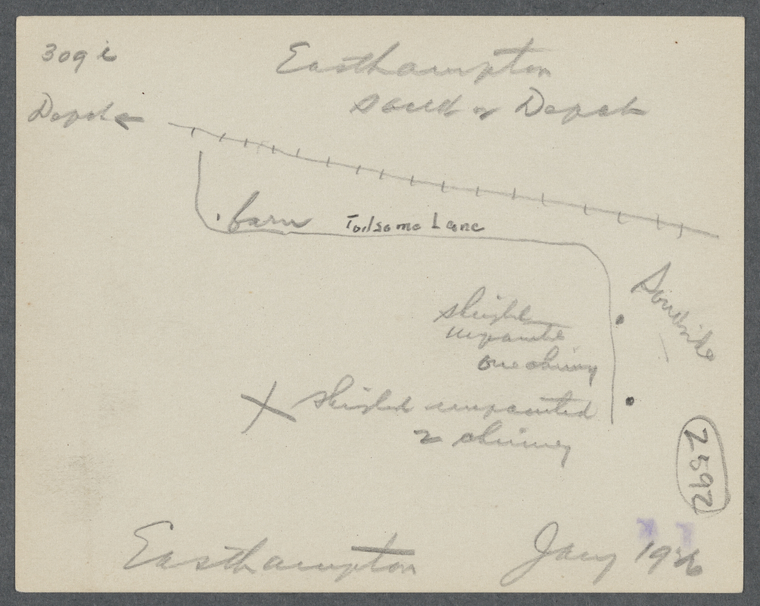 309 i
Easthampton
South of Depot
Depot
barn
Toilsome Lane
shingle
unpainte
one chimny
shingled unpainted
2 chimney
2592
Easthampton Jany 1926